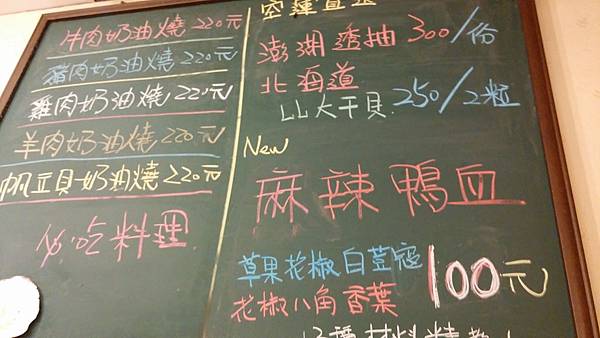 牛肉奶油燒220元
豬肉奶油燒220元
雞肉奶油燒220元
羊肉奶油燒220元
帆立貝奶油燒220元
必吃料理
空運直送
澎湖透抽300/份
北海道
LL大干貝 250/2粒
New
麻辣鴨血
草果花椒白荳蔻
花椒八角香葉
100元